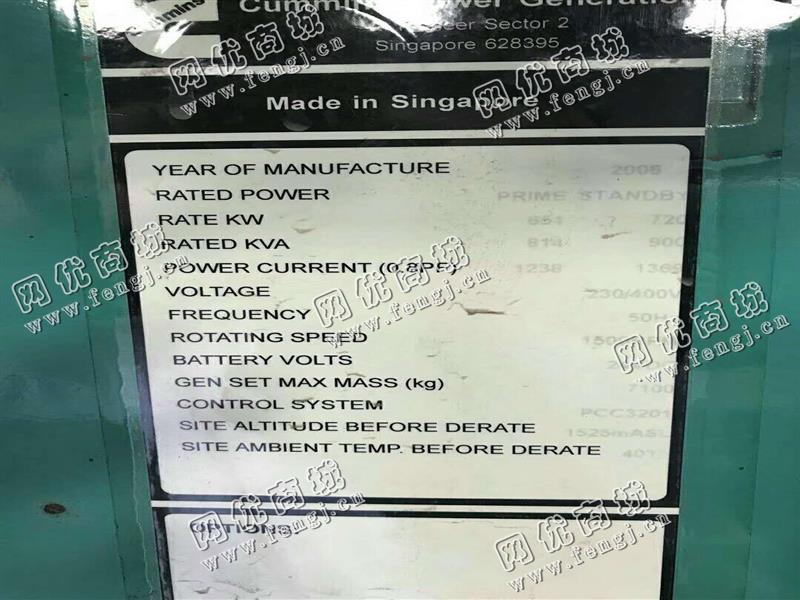 Cummins
Cummins Power Generation
eer Sector 2
Singapore 628395
Made in Singapore
YEAR OF MANUFACTURE 2006
RATED POWER PRIME STANDBY
RATE KW 651 / 720
RATED KVA 814 900
POWER CURRENT (0.8PF) 1238 1369
VOLTAGE 230/400V
FREQUENCY 50H
ROTATING SPEED 150
BATTERY VOLTS
GEN SET MAX MASS (kg) 7100
CONTROL SYSTEM PCC3201
SITE ALTITUDE BEFORE DERATE 1525mASL
SITE AMBIENT TEMP. BEFORE DERATE 40
OPTIONS
网优商城
www.fengj.cn
网优商城
www.fengj.cn
网优商城
www.fengj.cn
网优商城
www.fengj.cn
网优商城
www.fengj.cn
网优商城
www.fengj.cn
网优商城
www.fengj.cn